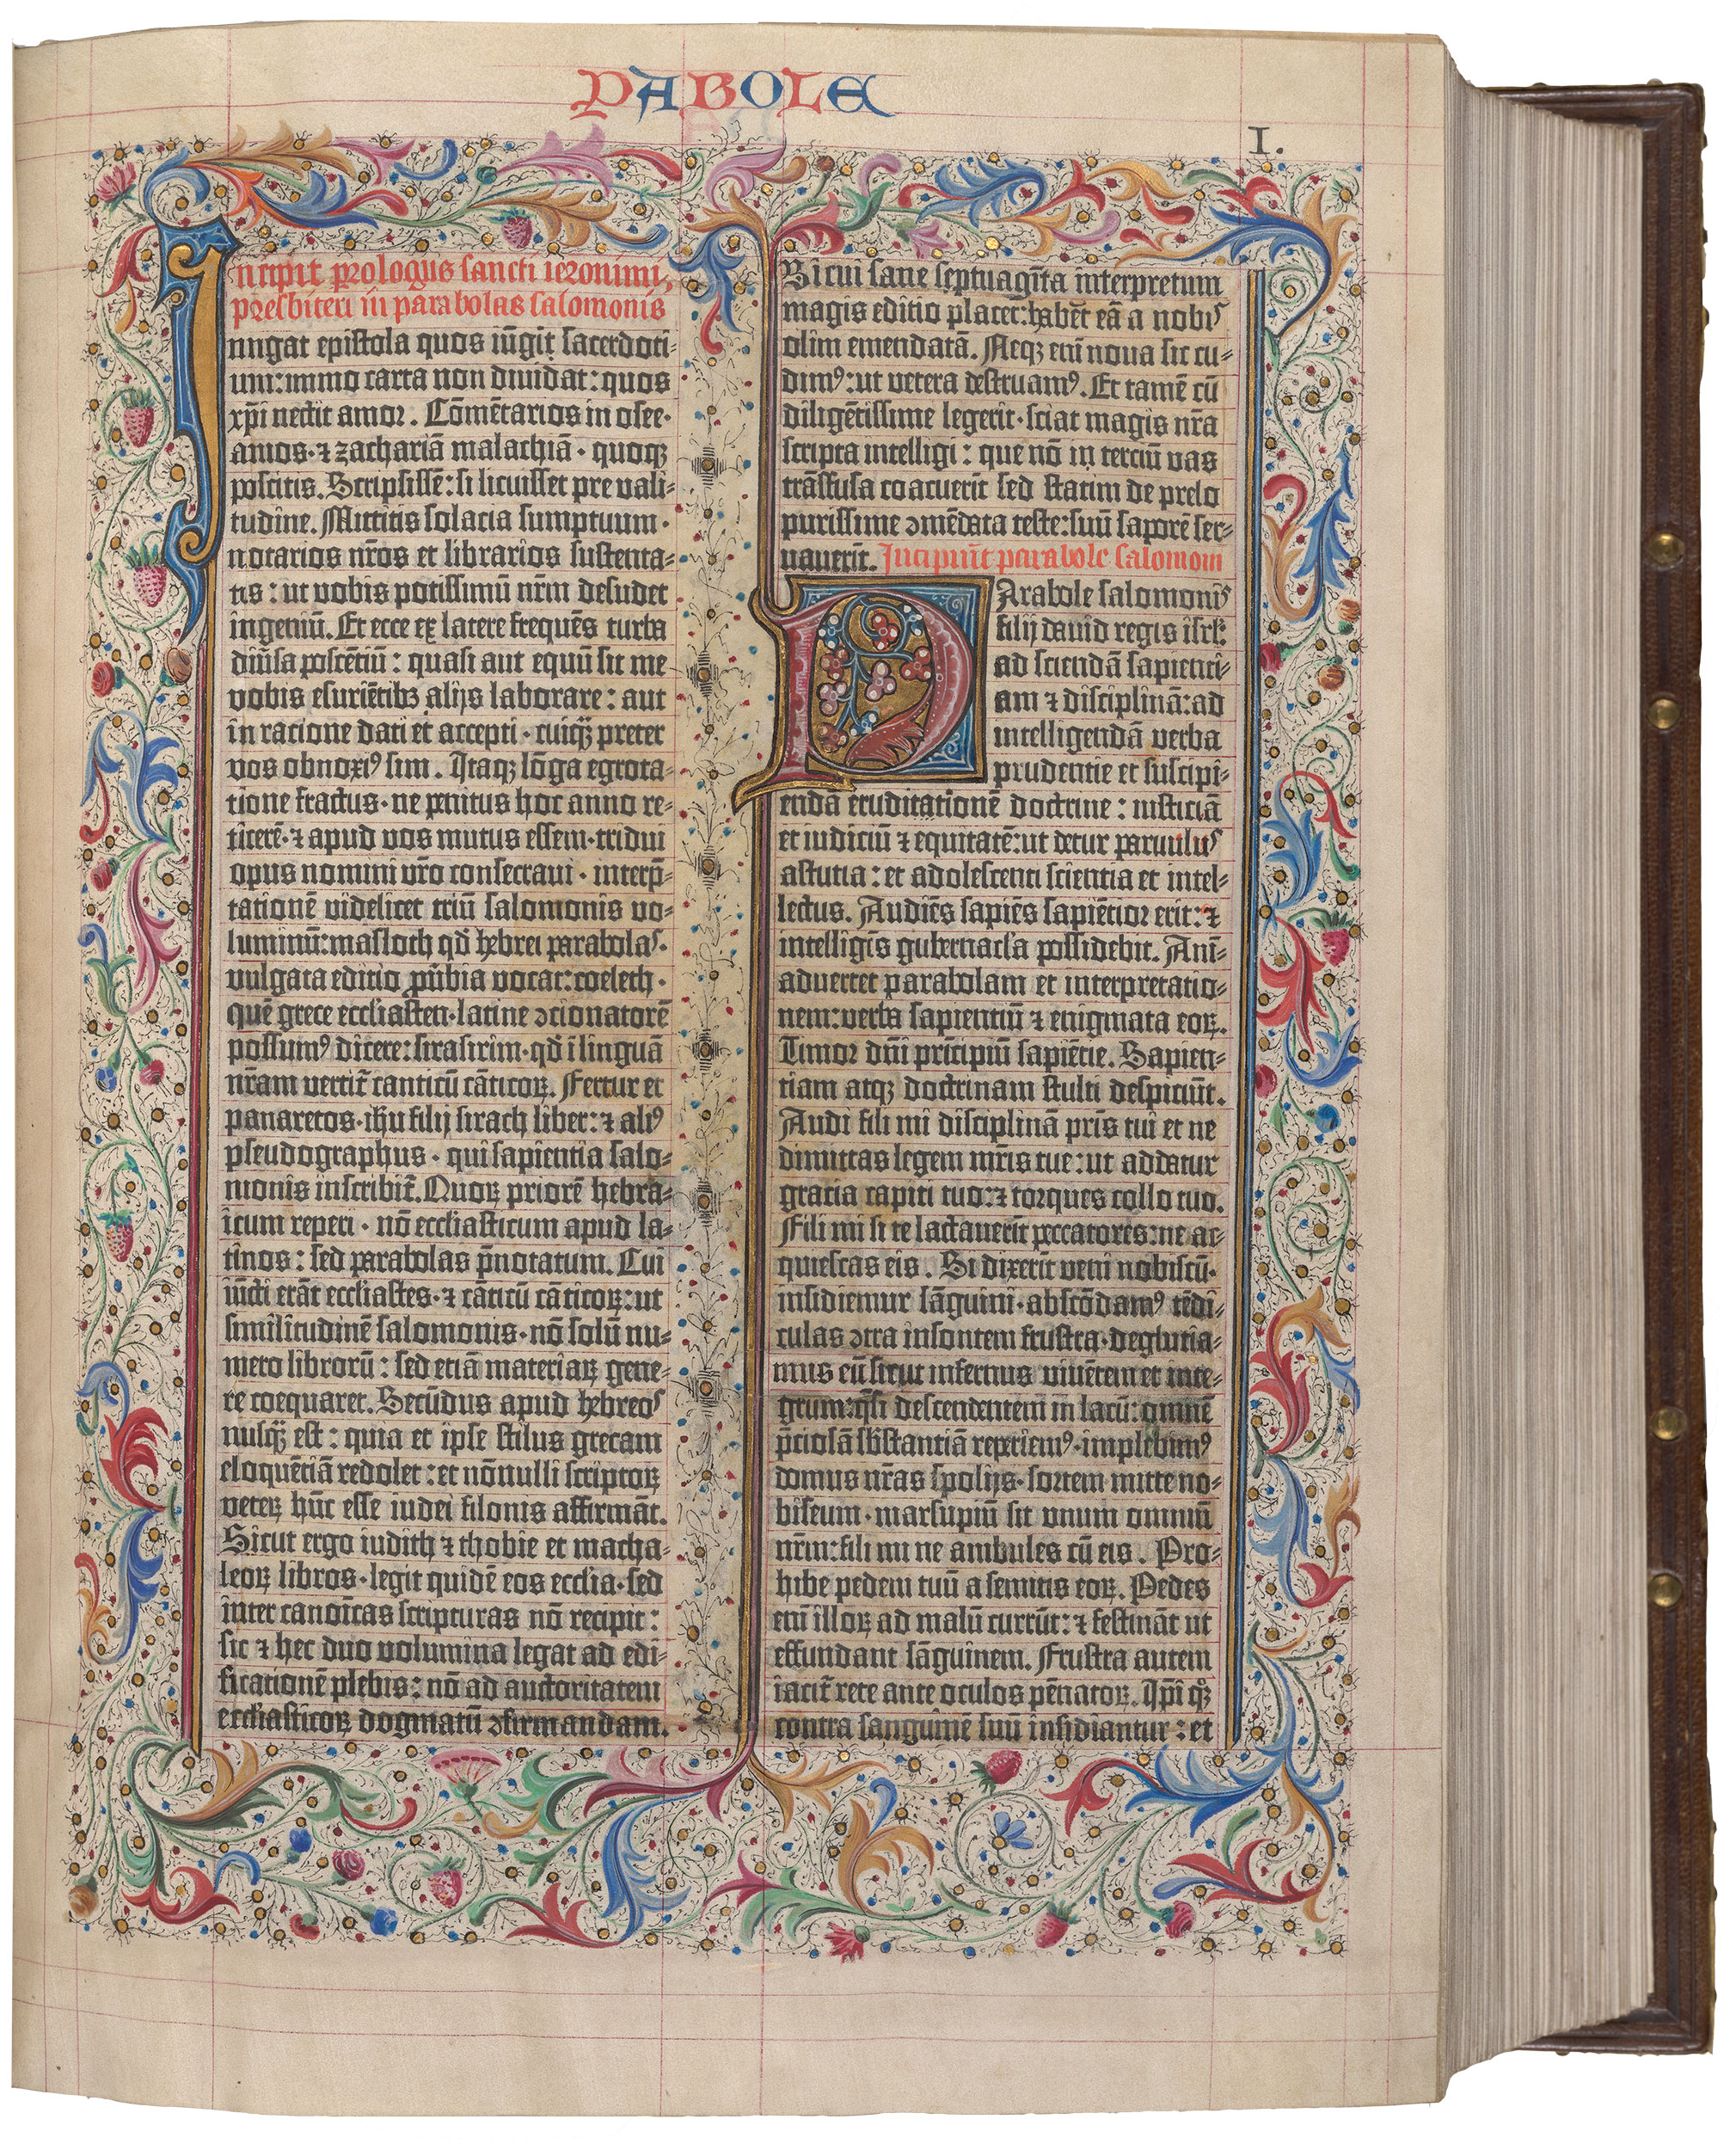 PABOLE
I.
Incipit prologus sancti ieronimi,
presbiteri in parabolas salomonis
Iungat epistola quos iũgit sacerdoti-
um: immo carta non diuidat: quos
xp̃i nectit amor. Cõmẽtarios in osee·
amos· ⁊ zachariã malachiã · quoqꝫ
poscitis. Scripsissẽ: si licuisset pre vali-
tudine. Mittitis solacia sumptuum ·
notarios nr̃os et librarios sustenta-
tis: ut vobis potissimũ nr̃m desudet
ingeniũ. Et ecce ex latere frequẽs turba
diũsa poscẽtiũ: quasi aut equũ sit me
vobis esuriẽtibꝫ alijs laborare: aut
in racione dati et accepti · cuiq̃ꝫ preter
vos obnoxiꝰ sim. Itaqꝫ lõga egrota-
tione fractus · ne penitus hoc anno re-
ticerẽ · ⁊ apud vos mutus essem · tridui
opus nomini vr̃o consecraui · interp̃-
tationẽ videlicet triũ salomonis vo-
luminũ: masloth qd̃ hebrei parabolas·
vulgata editio ꝓũbia vocat: coeleth ·
quẽ grece ecclĩasten · latine ↄcionatorẽ
possumꝰ dicere: sirasirim · qd̃ ĩ linguã
nr̃am vertit̃ canticũ cãticoꝝ. Fertur et
panaretos · ihũ filij sirach liber: ⁊ aliꝰ
pseudographus · qui sapientia salo-
monis inscribit̃. Quoꝝ priorẽ hebra-
icum reperi · nõ ecclĩasticum apud la-
tinos: sed parabolas p̃notatum. Cui
iũcti erãt ecclĩastes · ⁊ cãticũ cãticoꝝ: ut
similitudinẽ salomonis · nõ solũ nu-
mero librorũ: sed etiã materiaꝝ gene-
re coequaret. Secũdus apud hebreos
nusq̃ꝫ est: quia et ipse stilus grecam
eloquẽtiã redolet: et nõnulli scriptoꝝ
veteꝝ hũc esse iudei filonis affirmãt.
Sicut ergo iudith ⁊ thobie et macha-
beoꝝ libros · legit quidẽ eos ecclĩa · sed
inter canoĩcas scripturas nõ recipit:
sic ⁊ hec duo volumina legat ad edi-
ficationẽ plebis: nõ ad auctoritatem
ecclĩasticoꝝ dogmatũ ↄfirmandam.
Si cui sane septuagĩta interpretum
magis editio placet: habẽt eã a nobis
olim emendatã. Neqꝫ eñ noua sic cu-
dimꝰ: ut vetera destruamꝰ. Et tamẽ cũ
diligẽtissime legerit · sciat magis nr̃a
scripta intelligi: que nõ in terciũ vas
trãsfusa coacuerit sed statim de prelo
purissime ↄmẽdata teste: suũ saporẽ ser-
uauerĩt. Incipiũt parabole salomoni
PArabole salomonis
filij dauid regis isrl̃:
ad sciendã sapienti-
am ⁊ disciplinã: ad
intelligendã verba
prudentie et suscipi-
endã eruditationẽ doctrine: iusticiã
et iudiciũ ⁊ equitatẽ: ut detur paruulis
astutia: et adolescenti scientia et intel-
lectus. Audiẽs sapiẽs sapiẽtior erit: ⁊
intelligẽs gubernacl̃a possidebit. Anĩ-
aduertet parabolam et interpretatio-
nem: verba sapientiũ ⁊ enigmata eoꝝ.
Timor dñi prĩcipiũ sapiẽtie. Sapien-
tiam atqꝫ doctrinam stulti despiciũt.
Audi fili mi disciplinã pr̃is tui et ne
dimittas legem mr̃is tue: ut addatur
gracia capiti tuo: ⁊ torques collo tuo.
Fili mi si te lactauerĩt peccatores: ne ac-
quiescas eis. Si dixerĩt veni nobiscũ·
insidiemur sãguini · abscõdamꝰ tẽdi-
culas ↄtra insontem frustra · deglutia-
mus eũ sicut infernus viuẽtem et inte-
grum: q̃si descendentem in lacũ: omnẽ
p̃ciosã sb̃stantiã reperiemꝰ · implebimꝰ
domus nr̃as spolijs · sortem mitte no-
biscum · marsupiũ sit vnum omniũ
nr̃m: fili mi ne ambules cũ eis. Pro-
hibe pedem tuũ a semitis eoꝝ. Pedes
eñ illoꝝ ad malũ currũt: ⁊ festinãt ut
effundant sãguinem. Frustra autem
iacit̃ rete ante oculos pẽnatoꝝ. Ipĩ qꝫ
contra sanguinẽ suũ insidiantur: et